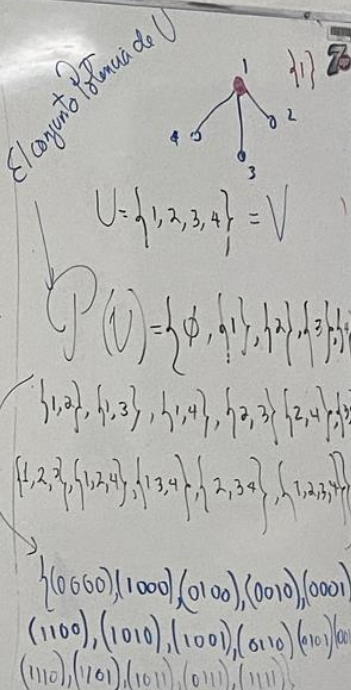 El conjunto Potencia de U
1 {1}
4 2
3
U={1,2,3,4} = V
P(U)={∅,{1},{2},{3},{4
{1,2},{1,3},{1,4},{2,3}{2,4},{3
{1,2,3},{1,2,4},{1 3,4},{2,3 4},{1,2,3,4}}
{(0000),(1000),(0100),(0010),(0001)
(1100),(1010),(1001),(0110)(0101)(00
(1110),(1101),(1011),(0111),(1111)}